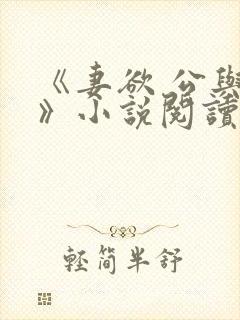 《妻欲 公與
》小說閱讀
輕簡半舒